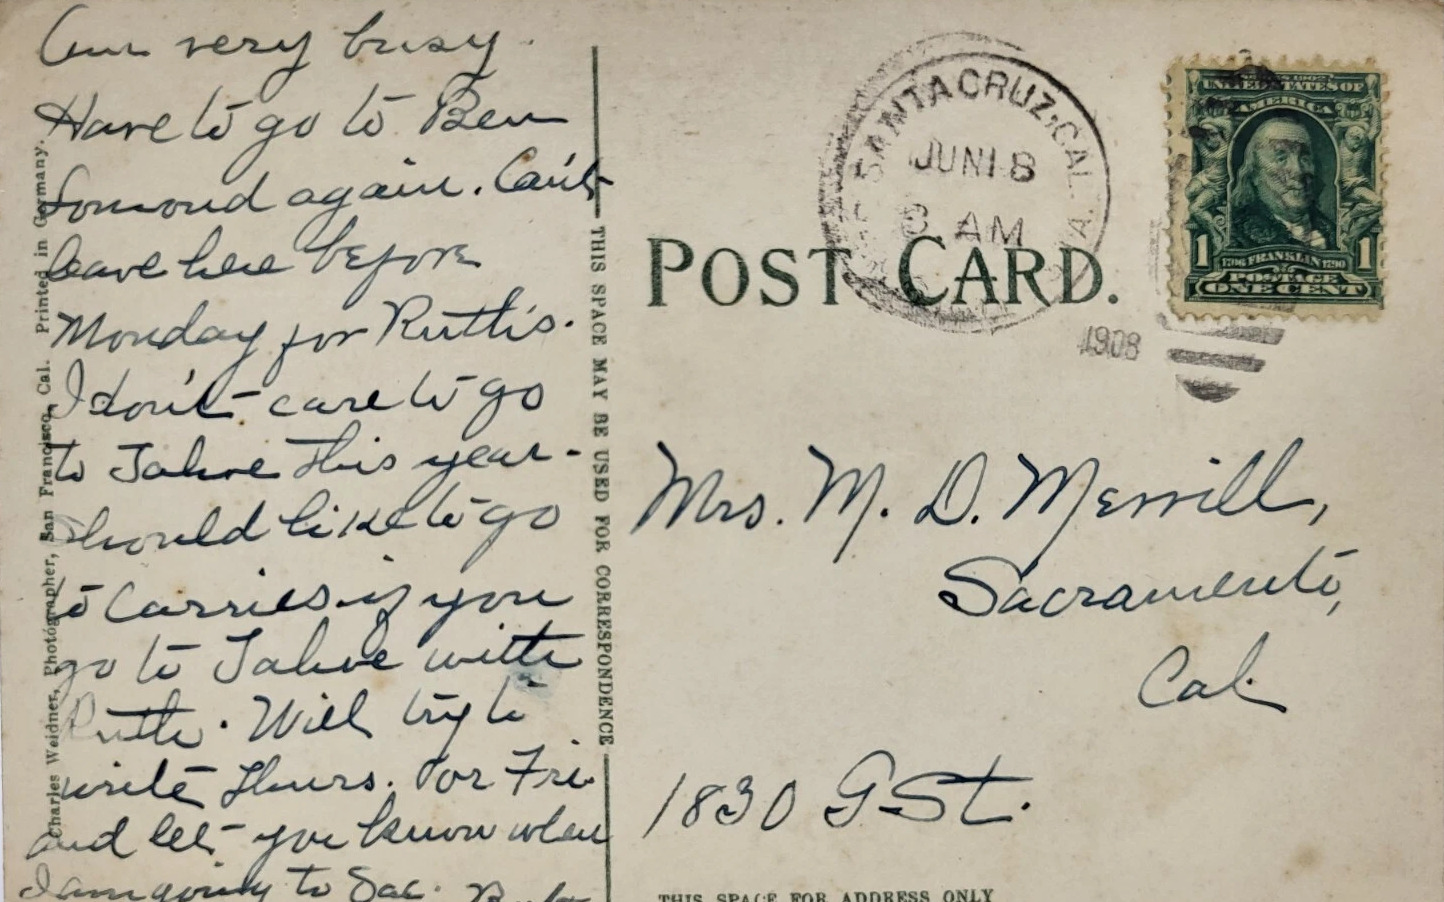 Am very busy.
Have to go to Ben
Lomond again. Can't
leave here before
Monday for Ruth's.
I don't care to go
to Tahoe this year.
Should like to go
to Carries if you
go to Tahoe with
Ruth. Will try to
write Thurs. or Fri
and let you know when
I am going to Sac.
Charles Weidner, Photographer, San Francisco, Cal. Printed in Germany.
THIS SPACE MAY BE USED FOR CORRESPONDENCE
SANTA CRUZ, CAL.
JUN 18
8 AM
1908
POST CARD.
SERIES 1902
UNITED STATES OF
AMERICA
1 1706 FRANKLIN 1790 1
POSTAGE
ONE CENT
Mrs. M. D. Merrill,
Sacramento,
Cal.
1830 G St.
THIS SPACE FOR ADDRESS ONLY